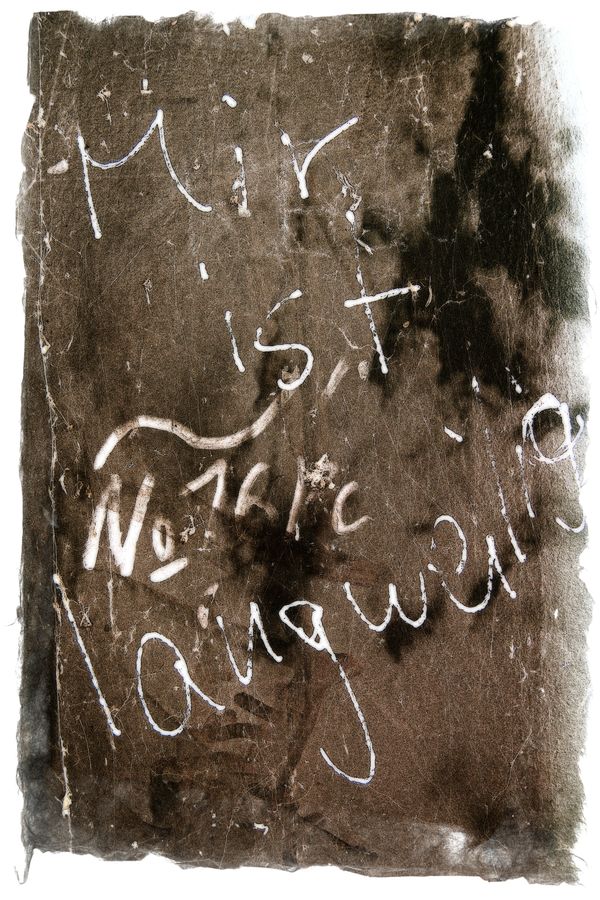 Mir
ist
No 16/c
langweilig